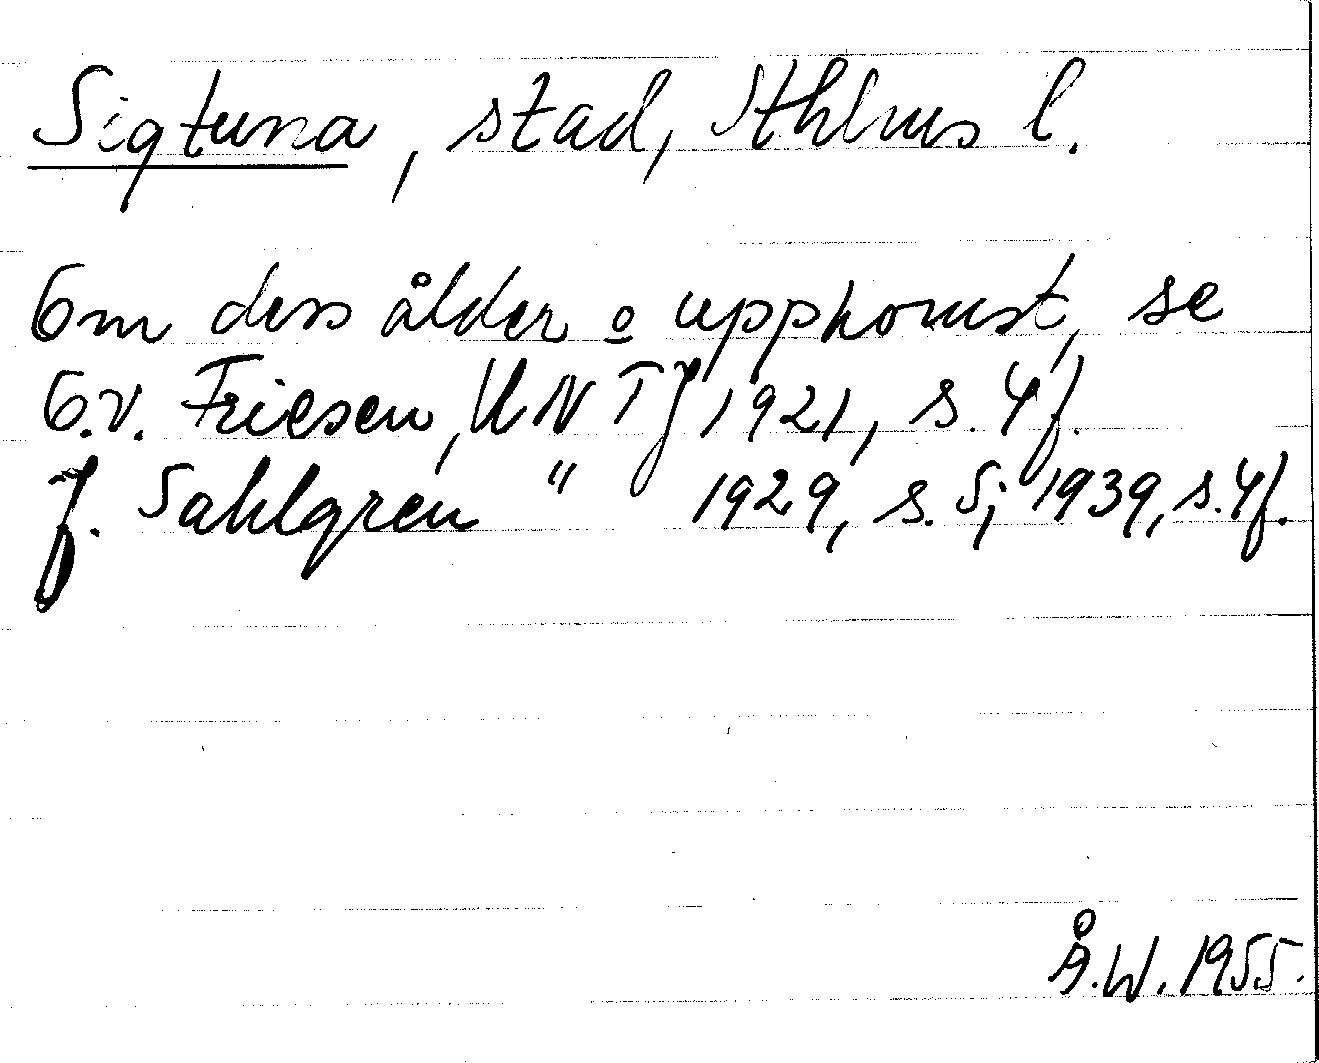 Sigtuna, stad, Sthlms l.
Om dess ålder o uppkomst, se
O.v. Friesen, UNTJ 1921, s. 4f.
J. Sahlgren " 1929, s. 5; 1939, s. 4f.
Å.W. 1955.